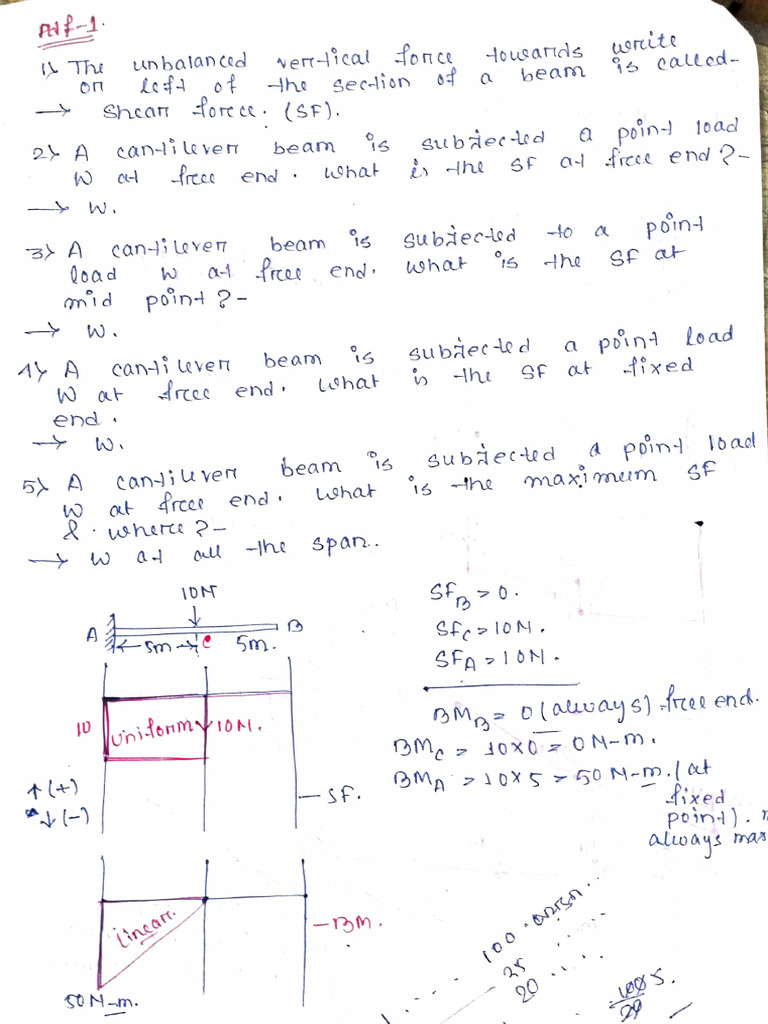 Pdf-1.
1) The unbalanced vertical force towards write
on left of the section of a beam is called-
→ Shear force. (SF).
2) A cantilever beam is subjected a point load
W at free end. What is the SF at free end?-
→ W.
3) A cantilever beam is subjected to a point
load W at free end. what is the SF at
mid point?-
→ W.
4) A cantilever beam is subjected a point load
W at free end. What is the SF at fixed
end.
→ W.
5) A cantilever beam is subjected a point load
W at free end. What is the maximum SF
&. where?-
→ W at all the span..
10N
A
B
5m
C
5m.
SF_B = 0.
SF_C = 10N.
SF_A = 10N.
10
Uniform
10N.
↑(+)
↓(-)
- SF.
BM_B = 0 (always) free end.
BM_C = 10×0 = 0 N-m.
BM_A = 10×5 = 50 N-m. (at
fixed
point).
always max
Linear.
- BM.
50 N-m.
100
25
20